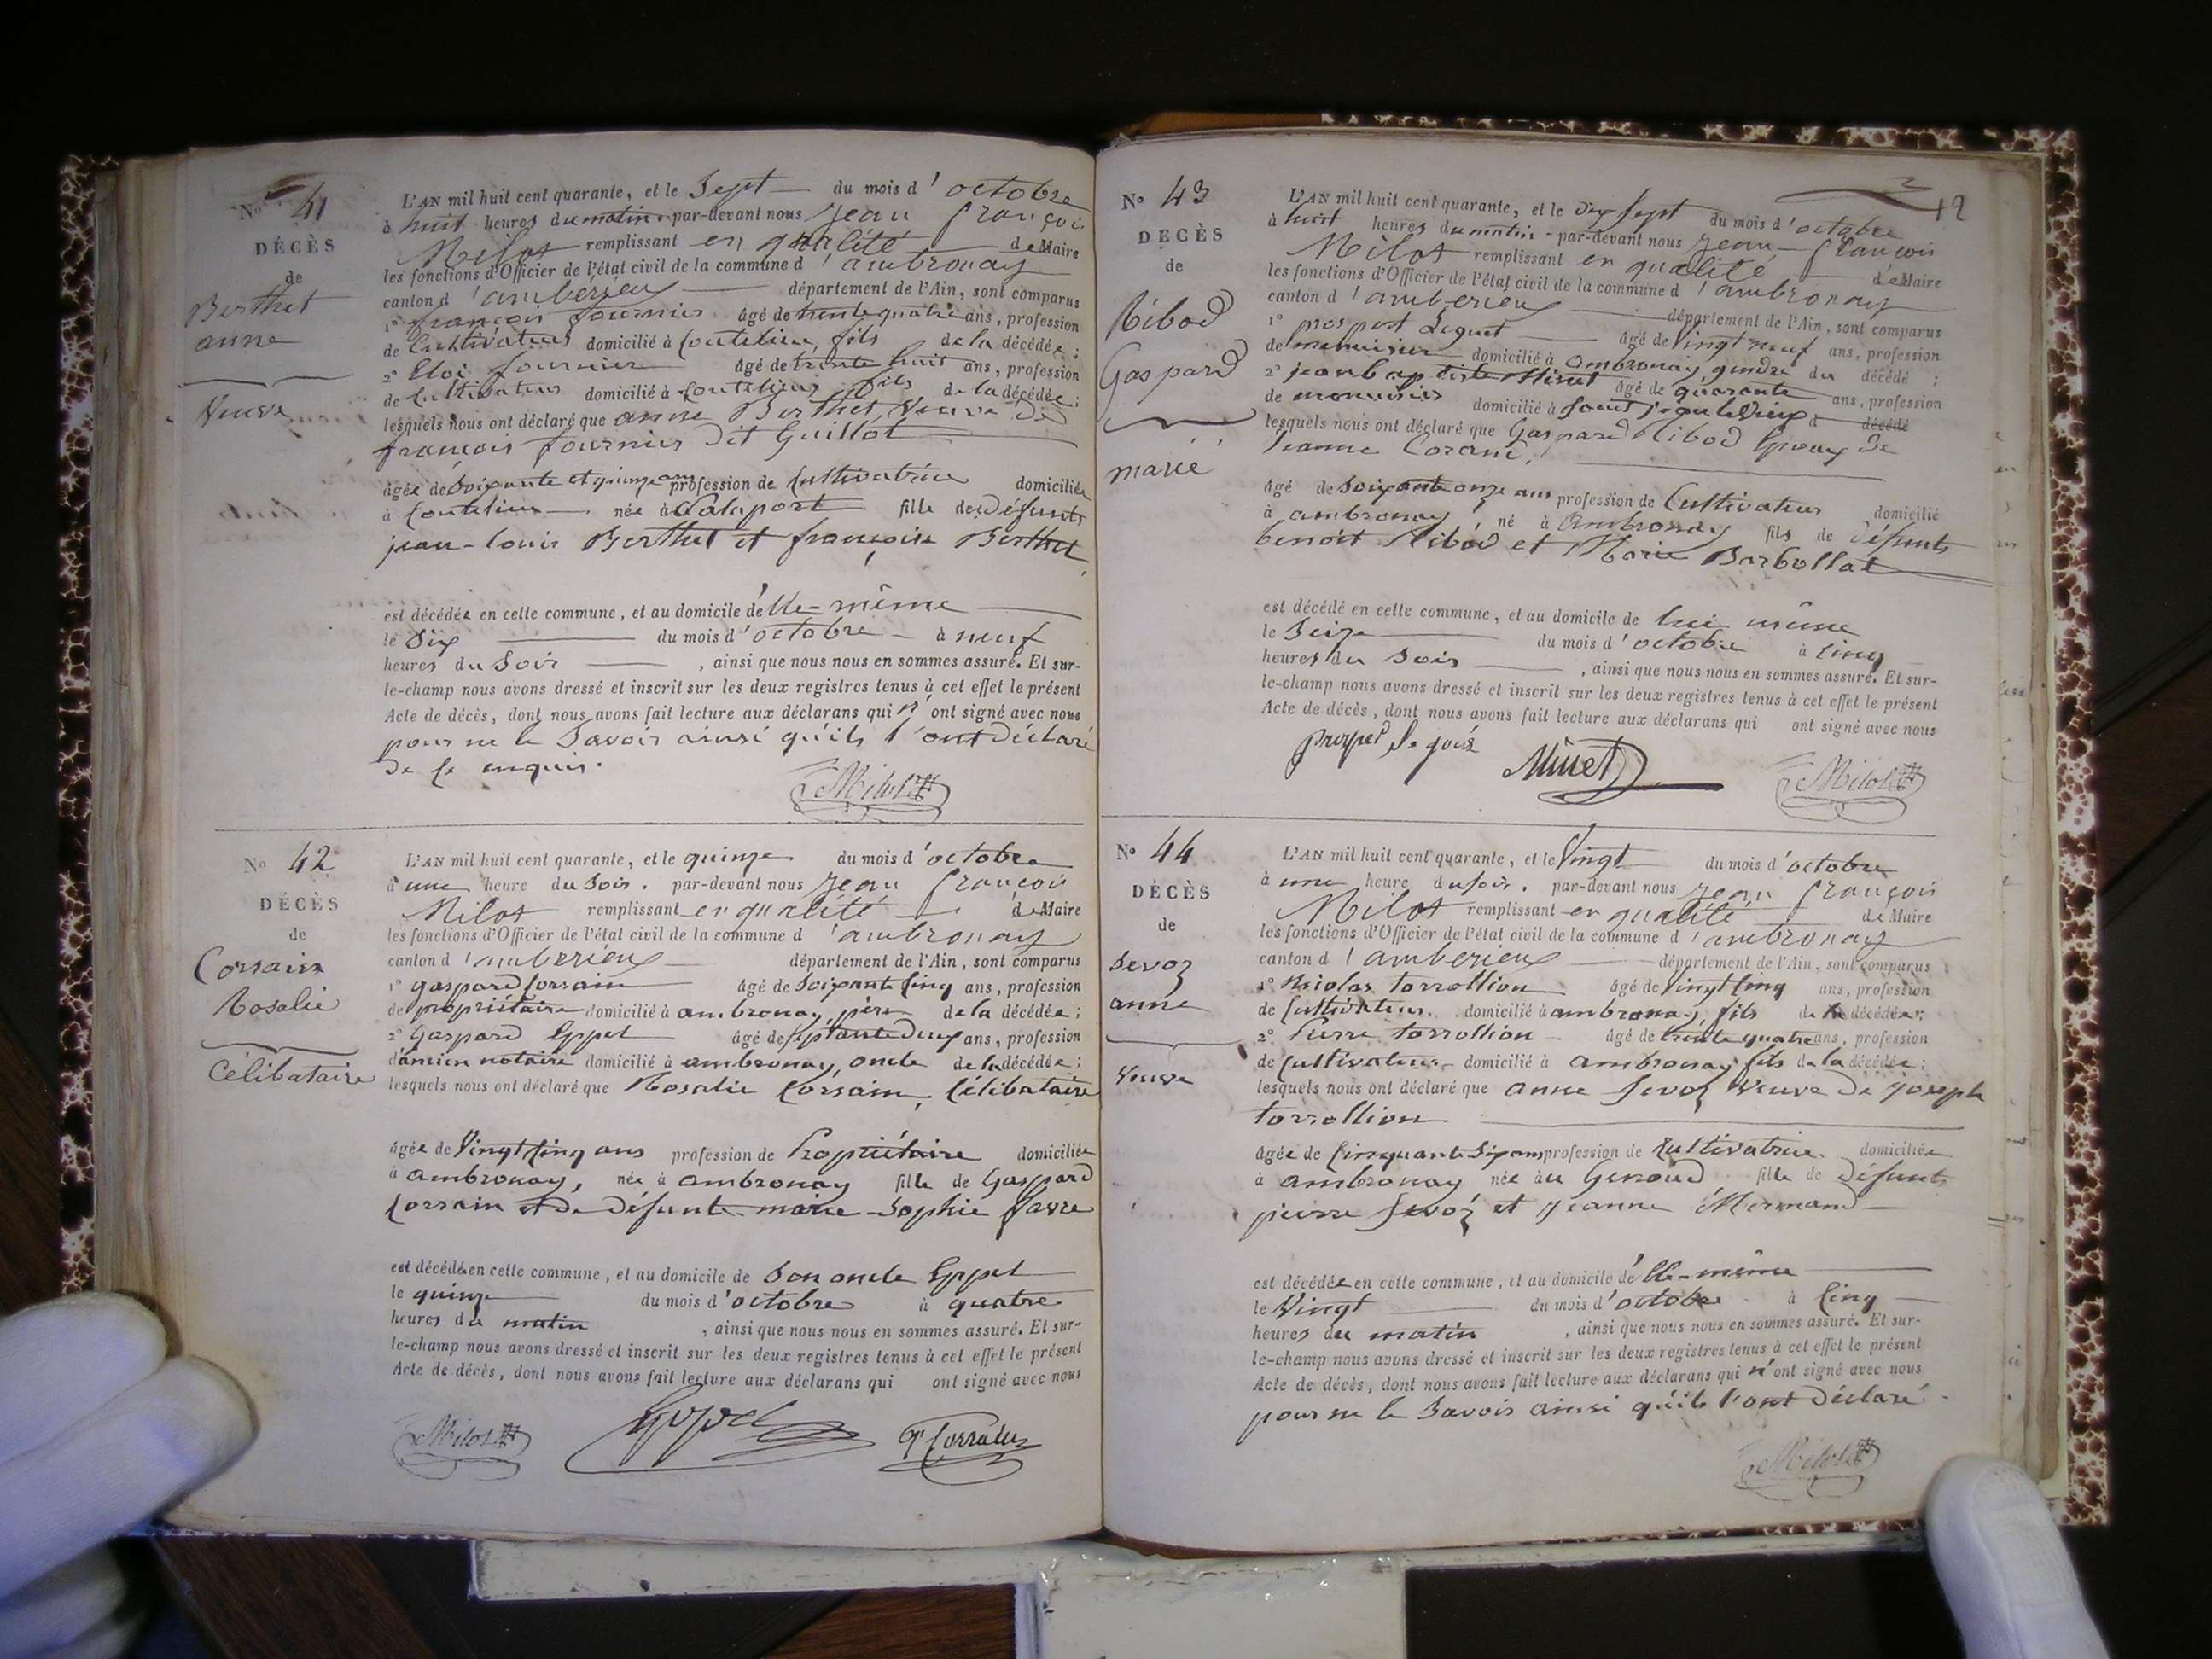 No 41
DÉCÈS
de
Berthet
anne
Veuve
L'AN mil huit cent quarante, et le Sept du mois d'octobre
à huit heures du matin par-devant nous Jean françois
Milot remplissant en qualité de Maire
les fonctions d'Officier de l'état civil de la commune d'ambronay
canton d'amberieu département de l'Ain, sont comparus
1° françois fournier âgé de trente quatre ans, profession
de Cultivateur domicilié à Coutelieu, fils de la décédée ;
2° Eloi fournier âgé de trente huit ans, profession
de Cultivateur domicilié à Coutelieu fils de la décédée ;
lesquels nous ont déclaré que anne Berthet, Veuve de
françois fournier dit Guillot
âgée de Soixante et quinze ans profession de Cultivatrice domiciliée
à Coutelieu née à Salaport fille des défunts
jean-louis Berthet et françoise Berthet
est décédée en cette commune, et au domicile d'elle-même
le Six du mois d'octobre à neuf
heures du Soir, ainsi que nous nous en sommes assuré. Et sur-
le-champ nous avons dressé et inscrit sur les deux registres tenus à cet effet le présent
Acte de décès, dont nous avons fait lecture aux déclarans qui n'ont signé avec nous
pour ne le Savoir ainsi qu'ils l'ont déclaré
de ce enquis.
Milot
No 42
DÉCÈS
de
Corsain
Rosalie
Célibataire
L'AN mil huit cent quarante, et le quinze du mois d'octobre
à une heure du Soir. par-devant nous Jean françois
Milot remplissant en qualité de Maire
les fonctions d'Officier de l'état civil de la commune d'ambronay
canton d'amberieu département de l'Ain, sont comparus
1° gaspard Corsain âgé de Soixante Cinq ans, profession
de propriétaire domicilié à ambronay, père de la décédée ;
2° Gaspard Eppel âgé de Septante deux ans, profession
d'ancien notaire domicilié à ambronay, oncle de la décédée ;
lesquels nous ont déclaré que Rosalie Corsain, Célibataire
âgée de Vingt Cinq ans profession de Propriétaire domiciliée
à ambronay, née à ambronay fille de Gaspard
Corsain et de défunte marie-Sophie favre
est décédée en cette commune, et au domicile de Son oncle Eppel
le quinze du mois d'octobre à quatre
heures du matin, ainsi que nous nous en sommes assuré. Et sur-
le-champ nous avons dressé et inscrit sur les deux registres tenus à cet effet le présent
Acte de décès, dont nous avons fait lecture aux déclarans qui ont signé avec nous
Milot Eppel Gd Corsain
12
No 43
DECÈS
de
Ribod
Gaspard
marié
L'AN mil huit cent quarante, et le dix Sept du mois d'octobre
à huit heures du matin par-devant nous Jean françois
Milot remplissant en qualité de Maire
les fonctions d'Officier de l'état civil de la commune d'ambronay
canton d'amberieu département de l'Ain, sont comparus
1° prospert Seguet âgé de Vingt neuf ans, profession
de menuisier domicilié à ambronay gendre du décédé ;
2° jean baptiste Minet âgé de quarante ans, profession
de menuisier domicilié à Saint jean le Vieux décédé
lesquels nous ont déclaré que Gaspard Ribod Epoux de
Jeanne Corand,
âgé de Soixante onze ans profession de Cultivateur domicilié
à ambronay né à ambronay fils de défunts
benoit Ribod et Marie Barbollat
est décédé en cette commune, et au domicile de lui même
le Seize du mois d'octobre à Cinq
heures du Soir, ainsi que nous nous en sommes assuré. Et sur-
le-champ nous avons dressé et inscrit sur les deux registres tenus à cet effet le présent
Acte de décès, dont nous avons fait lecture aux déclarans qui ont signé avec nous
Minet Milot
No 44
DÉCÈS
de
Sevoz
anne
Veuve
L'AN mil huit cent quarante, et le Vingt du mois d'octobre
à une heure du soir. par-devant nous Jean françois
Milot remplissant en qualité de Maire
les fonctions d'Officier de l'état civil de la commune d'ambronay
canton d'amberieu département de l'Ain, sont comparus
1° Nicolas torrollion âgé de Vingt Cinq ans, profession
de Cultivateur domicilié à ambronay, fils de la décédée ;
2° Pierre torrollion âgé de trente quatre ans, profession
de Cultivateur domicilié à ambronay fils de la décédée ;
lesquels nous ont déclaré que anne Sevoz Veuve de Joseph
torrollion
âgée de Cinquante Six ans profession de Cultivatrice domiciliée
à ambronay née au Genoud fille de défunts
pierre Sevoz et Jeanne Mermand
est décédée en cette commune, et au domicile d'elle-même
le Vingt du mois d'octobre à Cinq
heures du matin, ainsi que nous nous en sommes assuré. Et sur-
le-champ nous avons dressé et inscrit sur les deux registres tenus à cet effet le présent
Acte de décès, dont nous avons fait lecture aux déclarans qui n'ont signé avec nous
pour ne le Savoir ainsi qu'ils l'ont déclaré
Milot